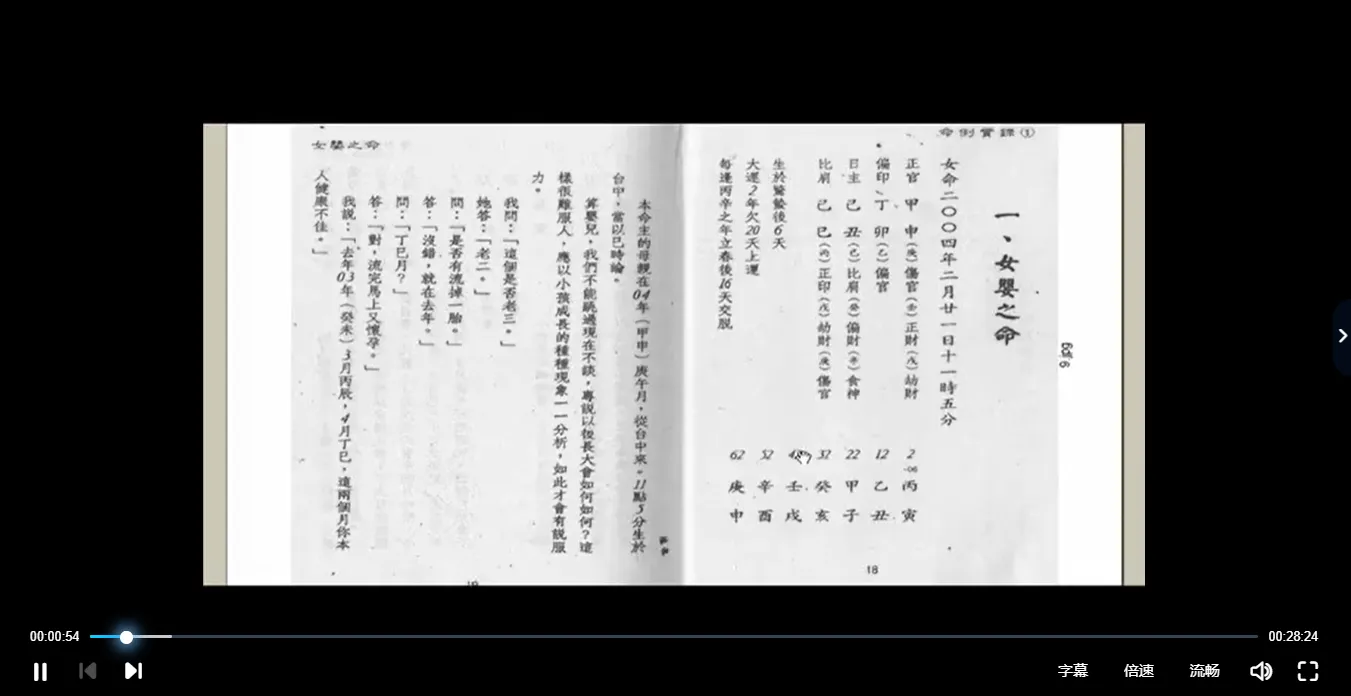 命例實錄①
一、女嬰之命
女命二〇〇四年二月廿一日十一時五分
正官 甲 申(庚)傷官(壬)正財(戊)劫財
偏印 丁 卯(乙)偏官
日主 己 丑(己)比肩(癸)偏財(辛)食神
比肩 己 巳(丙)正印(戊)劫財(庚)傷官
2 丙寅
12 乙丑
22 甲子
32 癸亥
壬戌
52 辛酉
62 庚申
生於驚蟄後6天
大運2年欠20天上運
每逢丙辛之年立春後16天交脫
18
女嬰之命
本命主的母親在04年(甲申)庚午月,從台中來。11點5分生於
台中,當以巳時論。
算嬰兒,我們不能跳過現在不談,專說以後長大會如何如何?這
樣很難服人,應以小孩成長的種種現象一一分析,如此才會有說服
力。
我問:「這個是否老三。」
她答:「老二。」
問:「是否有流掉一胎。」
答:「沒錯,就在去年。」
問:「丁巳月?」
答:「對,流完馬上又懷孕。」
我說:「去年03年(癸未)3月丙辰,4月丁巳,這兩個月你本
人健康不佳。」
00:00:54
00:28:24
字幕
倍速
流畅